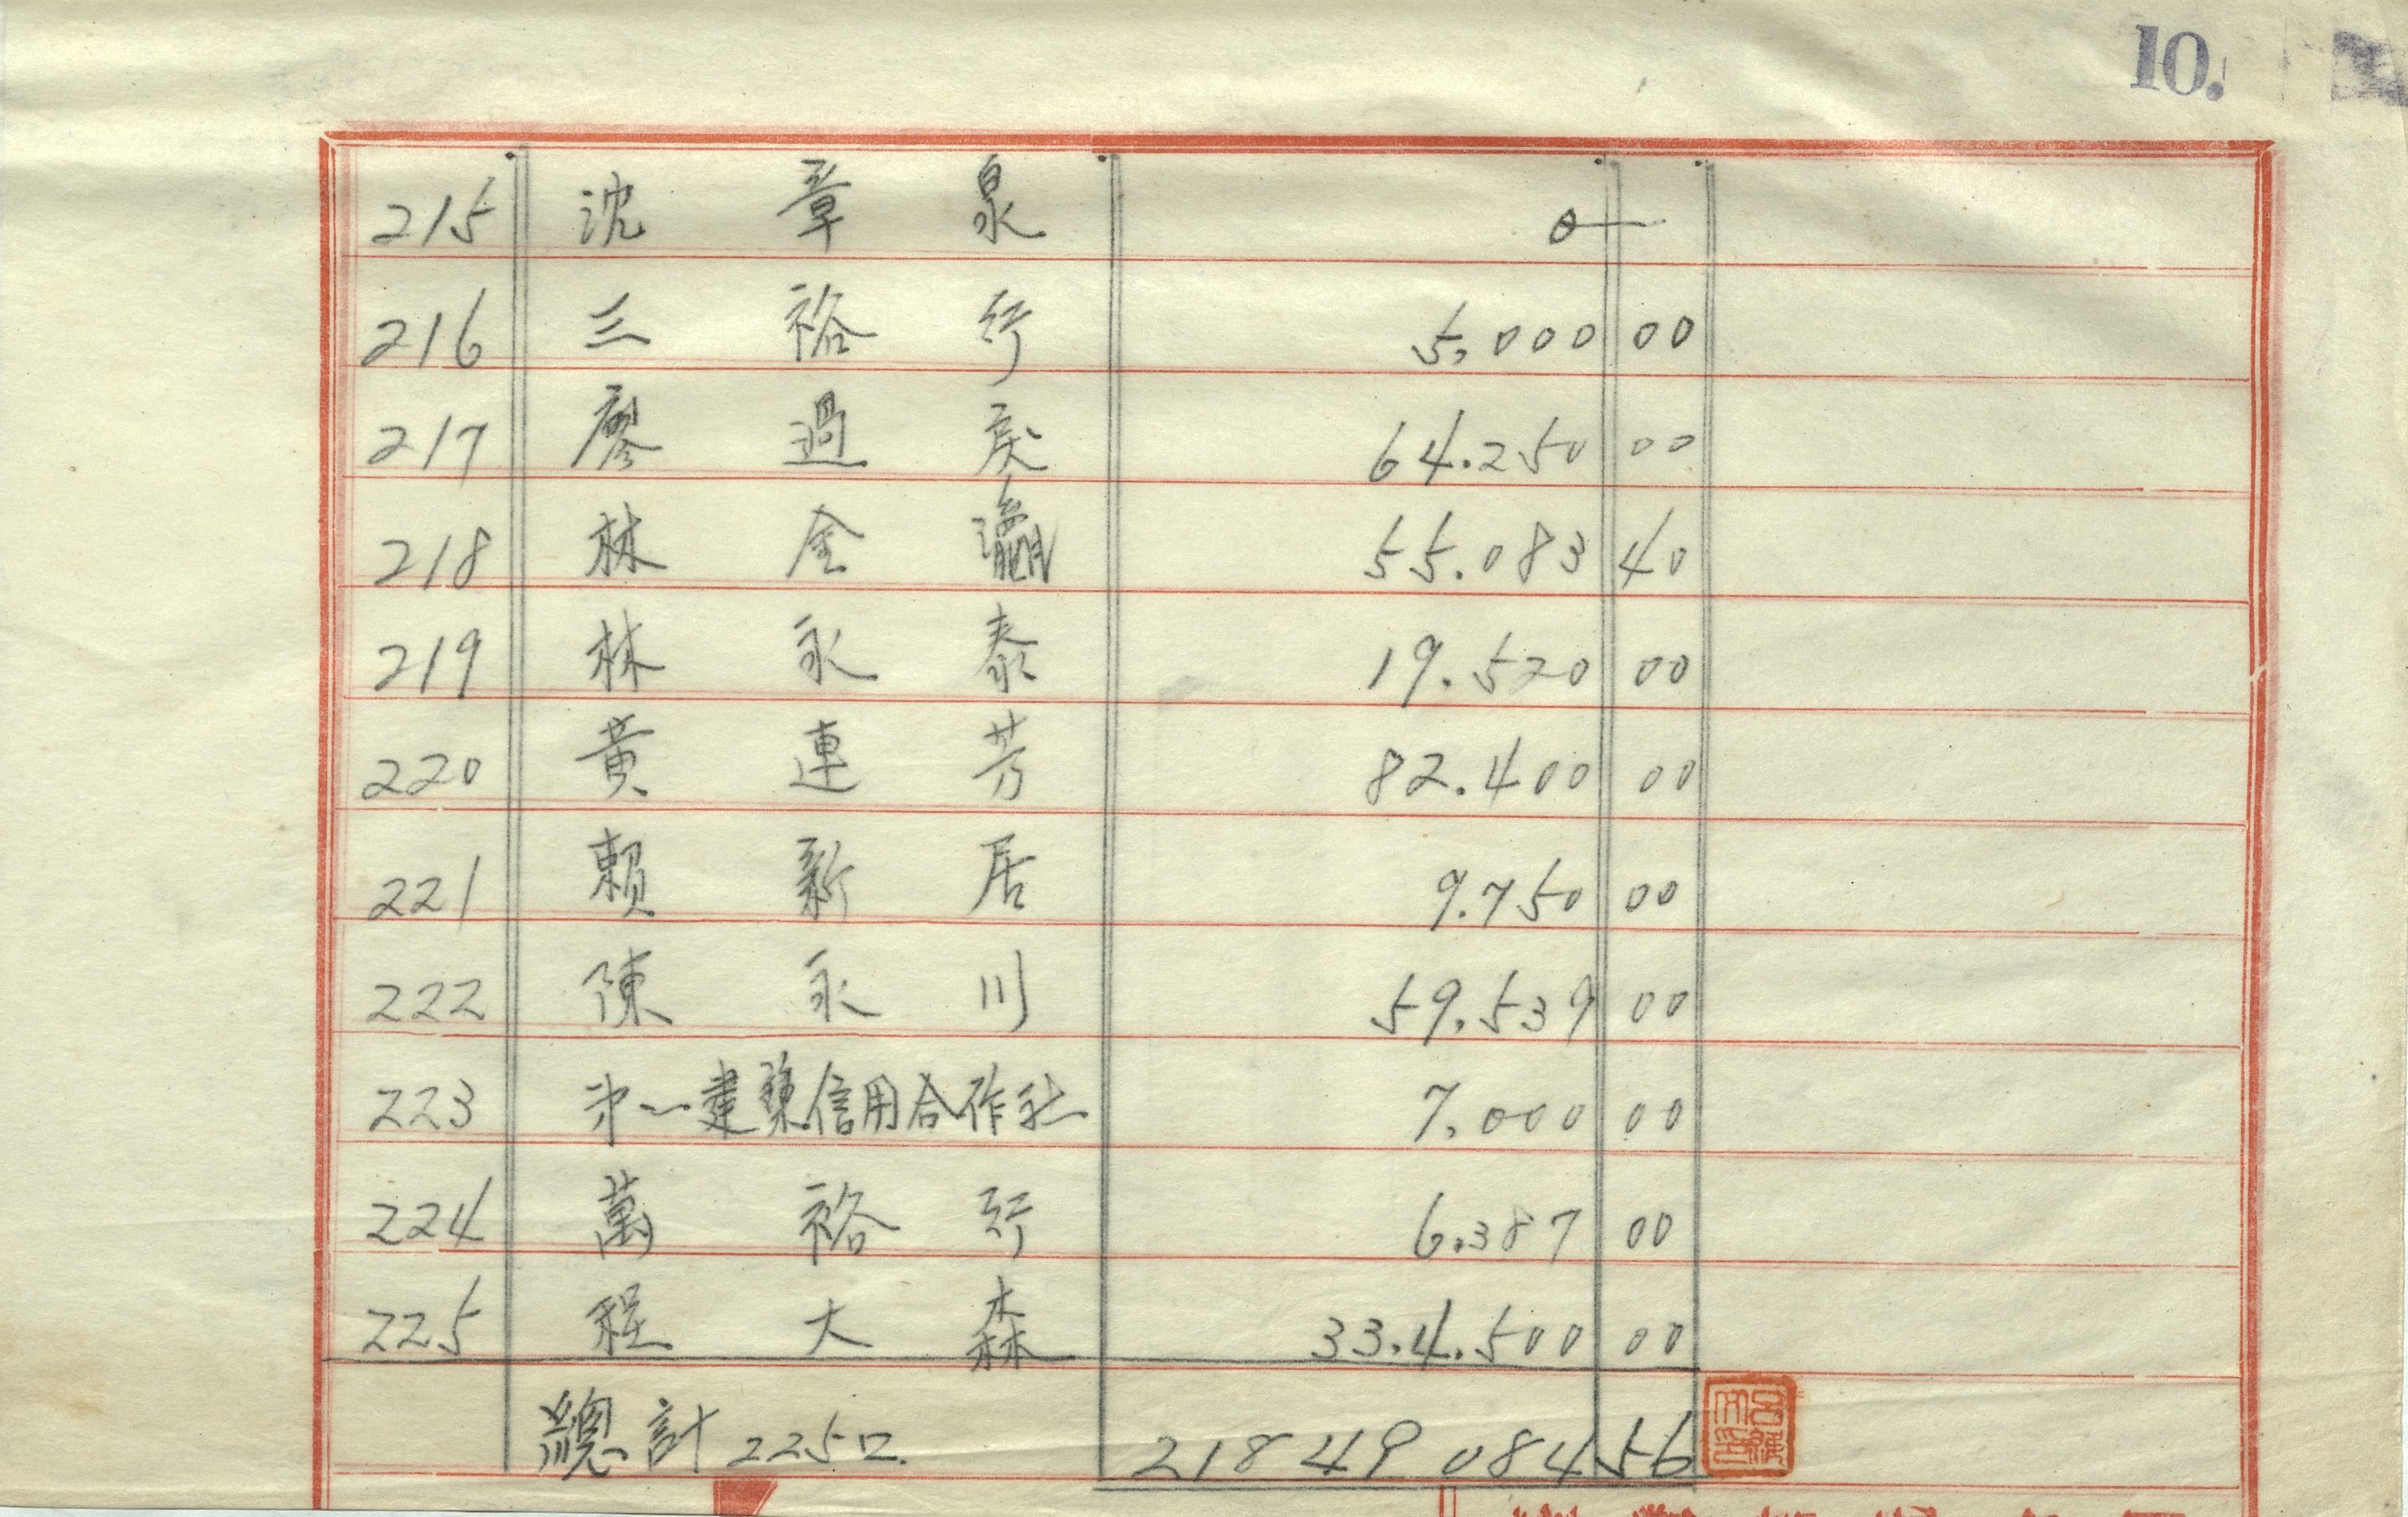 10.
215 沈章泉 0
216 三裕行 5.000 00
217 廖過房 64.250 00
218 林金瀛 55.083 40
219 林永泰 19.520 00
220 黃連芳 82.400 00
221 賴新居 9.750 00
222 陳永川 59.539 00
223 㐧一建築信用合作社 7.000 00
224 萬裕行 6.387 00
225 程大森 33.4.500 00
總計 225口. 21849084 56